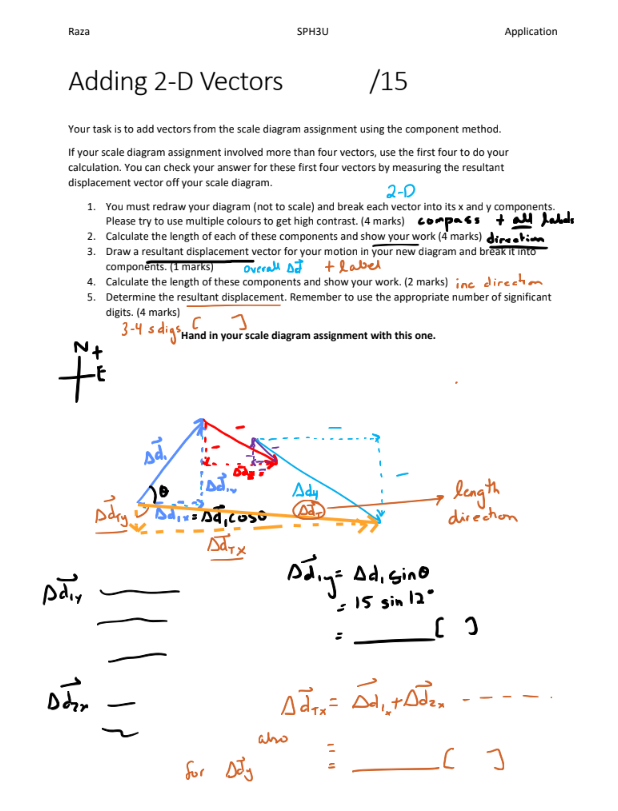 Raza SPH3U Application
Adding 2-D Vectors /15
Your task is to add vectors from the scale diagram assignment using the component method.
If your scale diagram assignment involved more than four vectors, use the first four to do your
calculation. You can check your answer for these first four vectors by measuring the resultant
displacement vector off your scale diagram.
2-D
1. You must redraw your diagram (not to scale) and break each vector into its x and y components.
Please try to use multiple colours to get high contrast. (4 marks) compass + all labels
2. Calculate the length of each of these components and show your work (4 marks) direction
3. Draw a resultant displacement vector for your motion in your new diagram and break it into
components. (1 marks) overall Δd⃗ + label
4. Calculate the length of these components and show your work. (2 marks) inc direction
5. Determine the resultant displacement. Remember to use the appropriate number of significant
digits. (4 marks)
3-4 s digs [ ]
Hand in your scale diagram assignment with this one.
N +
E
Δd⃗₁
θ
Δd⃗₁ᵧ
Δd⃗₁ₓ = Δd⃗₁cosθ
Δd₄
Δd⃗ᴛ
length
direction
Δd⃗ᴛᵧ
Δd⃗ᴛₓ
Δd⃗₁ᵧ = Δd₁ sinθ
= 15 sin 12°
= ______ [ ]
Δd⃗₁ᵧ
Δd⃗₂ₓ
Δd⃗ᴛₓ = Δd⃗₁ₓ + Δd⃗₂ₓ - - - - -
also
=
= ______ [ ]
for Δd⃗ᵧ